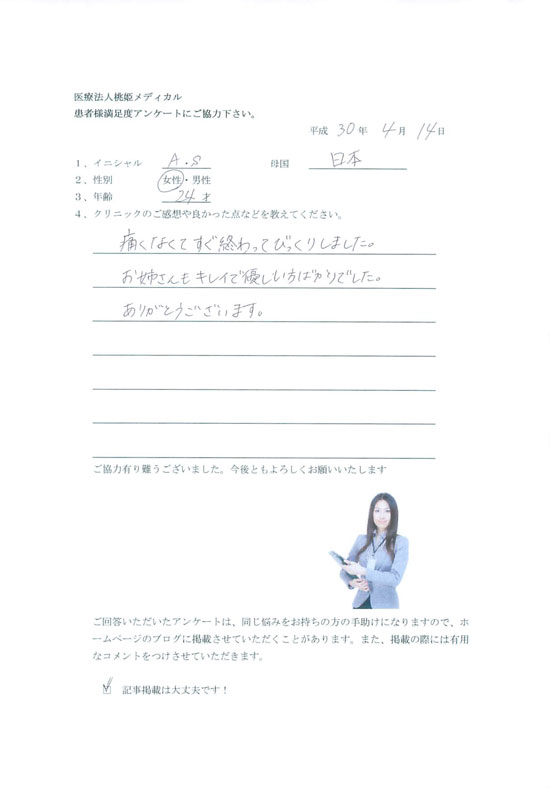 医療法人桃姫メディカル
患者様満足度アンケートにご協力下さい。
平成 30 年 4 月 14 日
1、イニシャル A・S 母国 日本
2、性別 女性・男性
3、年齢 24 才
4、クリニックのご感想や良かった点などを教えてください。
痛くなくてすぐ終わってびっくりしました。
お姉さんもキレイで優しい方ばかりでした。
ありがとうございます。
ご協力有り難うございました。今後ともよろしくお願いいたします
ご回答いただいたアンケートは、同じ悩みをお持ちの方の手助けになりますので、ホ
ームページのブログに掲載させていただくことがあります。また、掲載の際には有用
なコメントをつけさせていただきます。
記事掲載は大丈夫です！